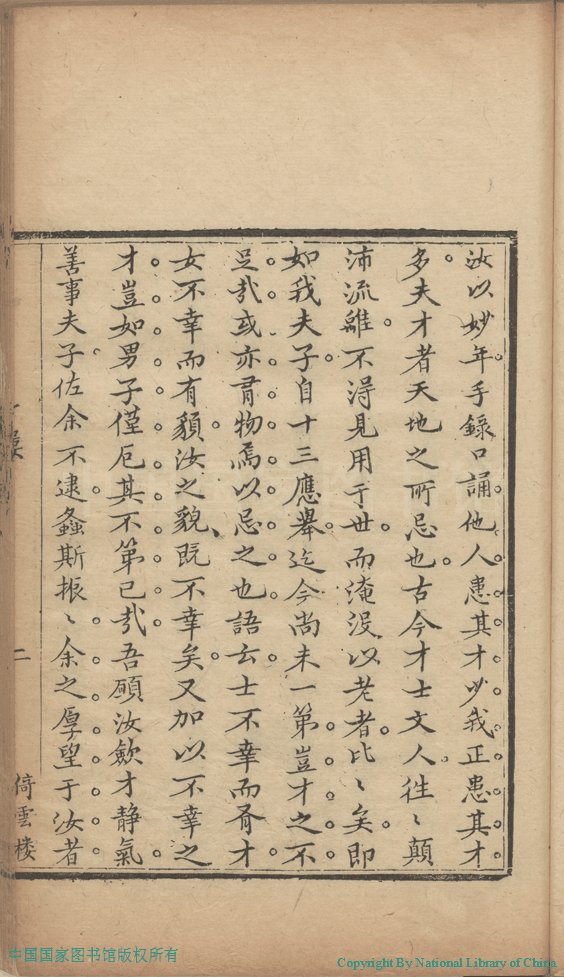 汝以妙年手錄口誦他人患其才少我正患其才
多夫才者天地之所忌也古今才士文人往〻顛
沛流離不得見用于世而淹没以老者比〻矣即
如我夫子自十三應舉迄今尚未一第豈才之不
足㢤或亦有物焉以忌之也語云士不幸而有才
女不幸而有貌汝之貌既不幸矣又加以不幸之
才豈如男子僅厄其不第已㢤吾願汝歛才靜氣
善事夫子佐余不逮螽斯振〻余之厚望于汝者
二
倚雲楼
中国国家图书馆版权所有
Copyright By National Library of China